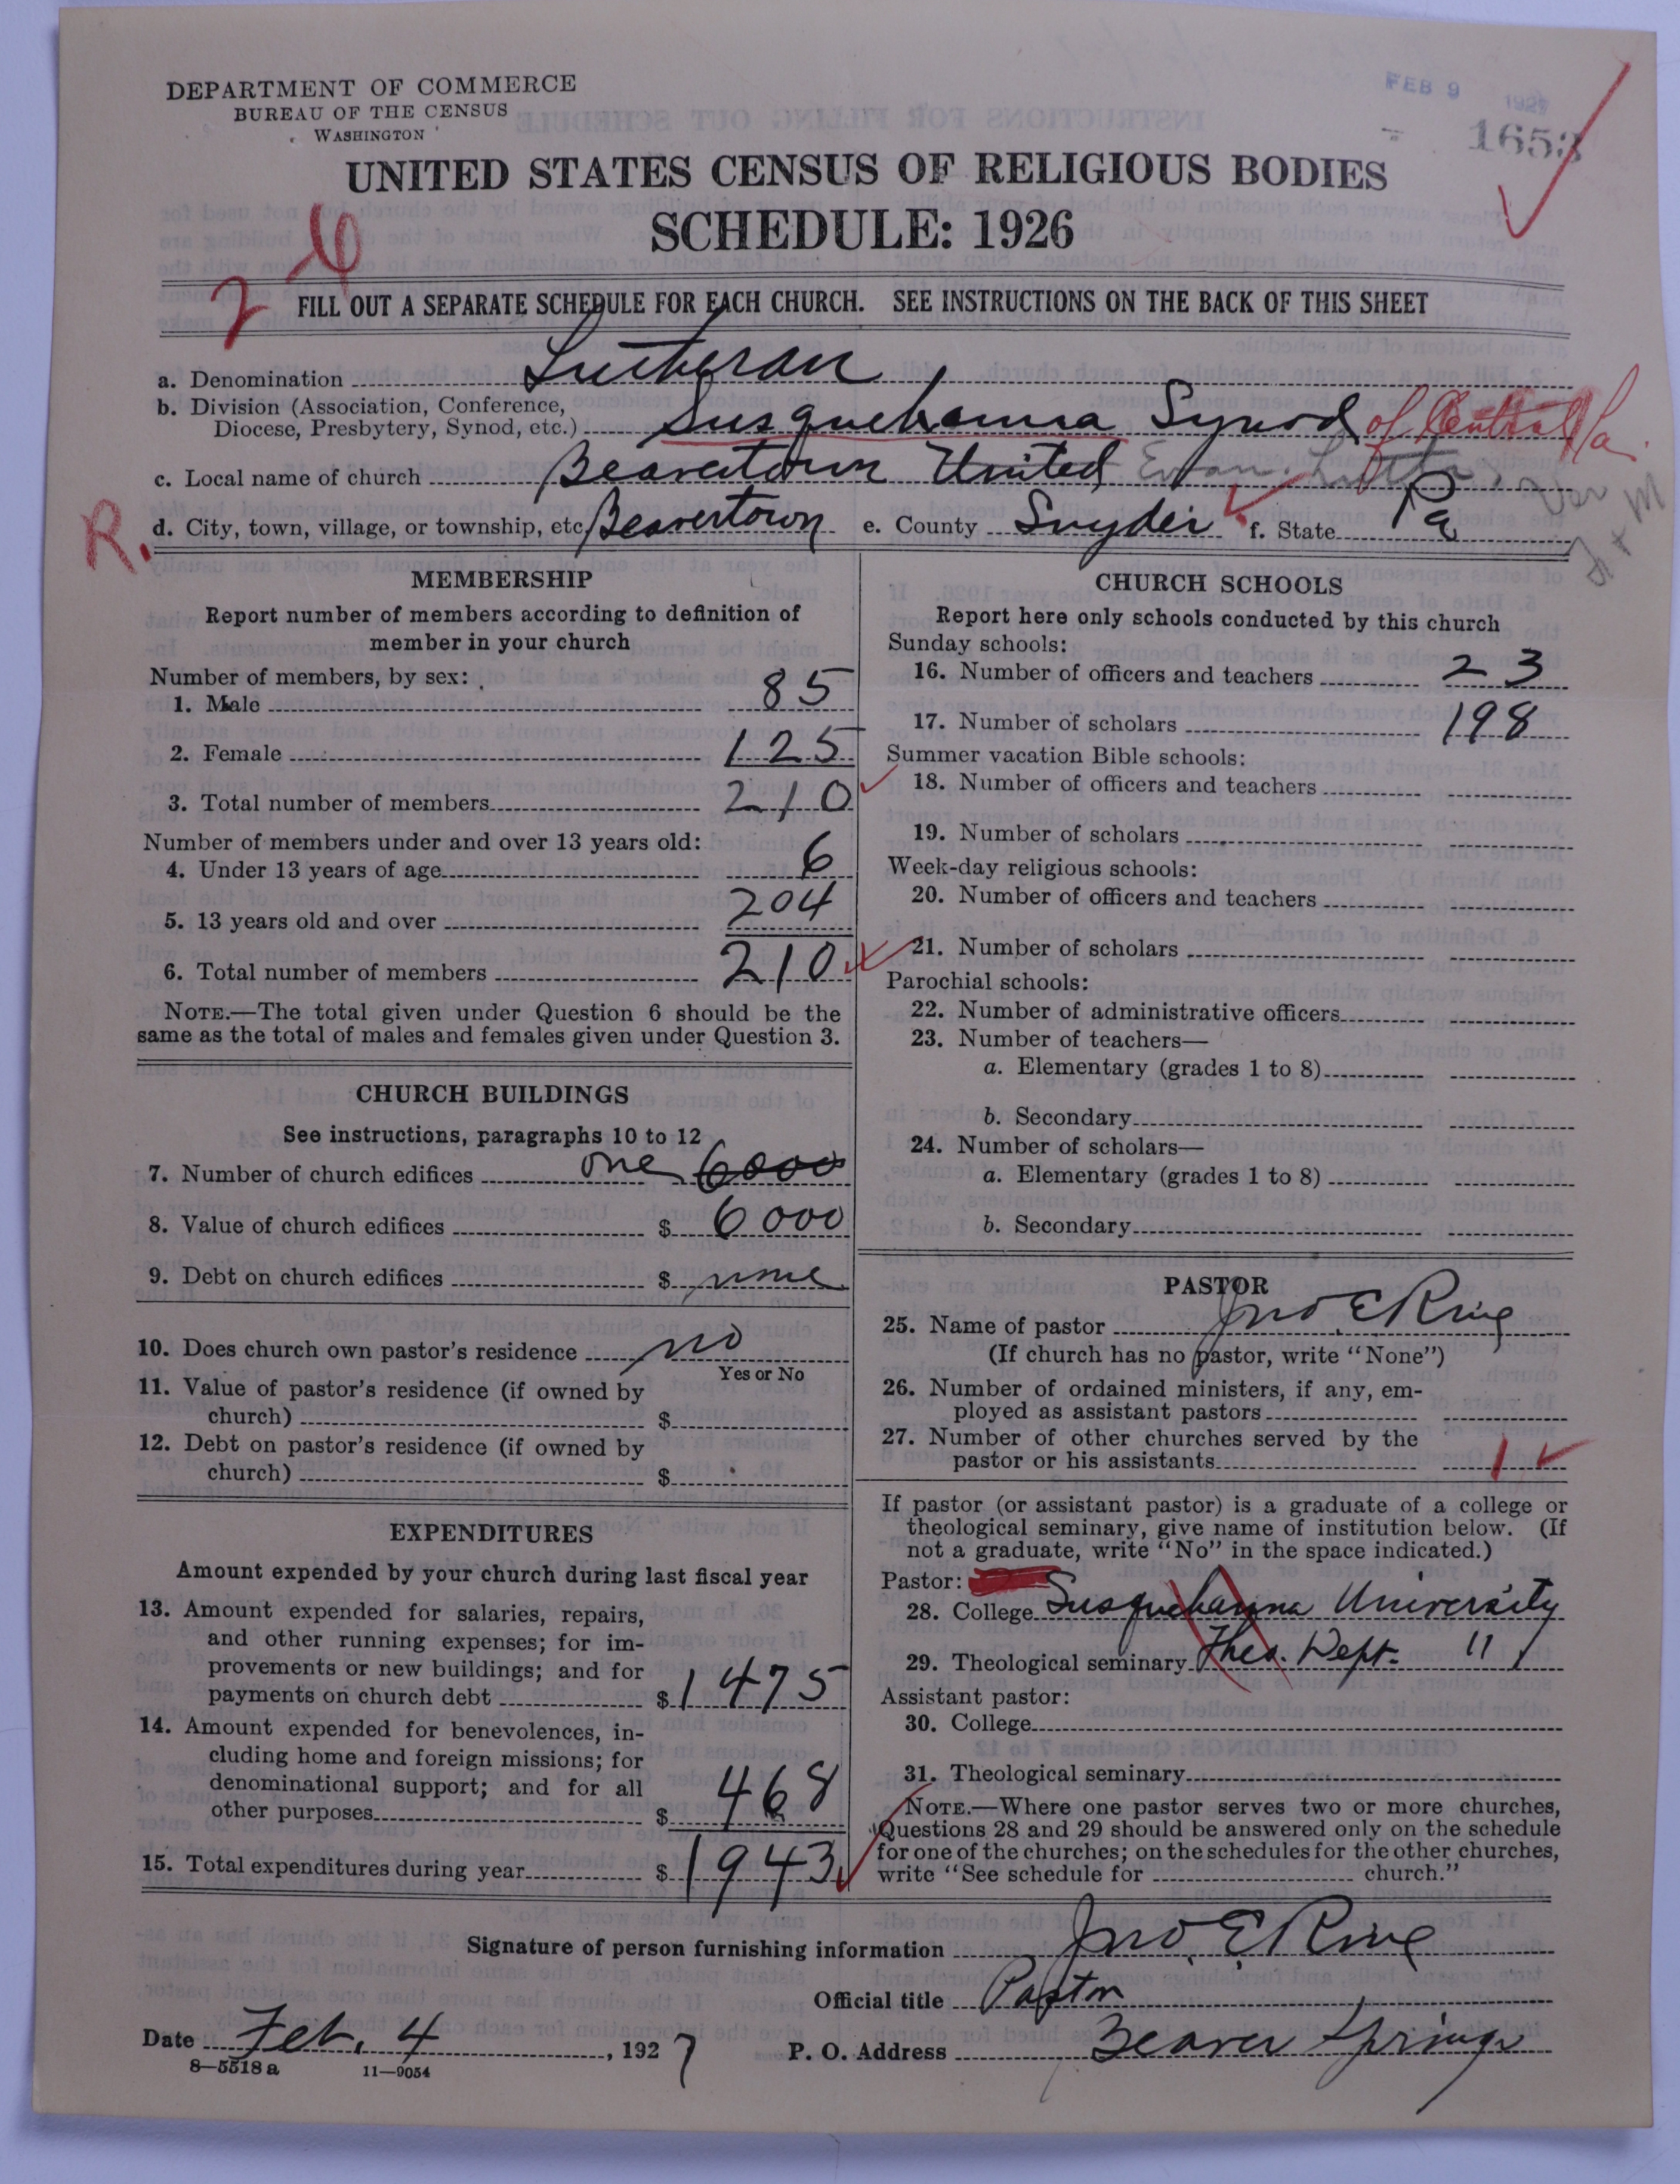 DEPARTMENT OF COMMERCE
BUREAU OF THE CENSUS
WASHINGTON
FEB 9 1927
1653
UNITED STATES CENSUS OF RELIGIOUS BODIES
SCHEDULE: 1926
2 6
FILL OUT A SEPARATE SCHEDULE FOR EACH CHURCH. SEE INSTRUCTIONS ON THE BACK OF THIS SHEET
a. Denomination Lutheran
b. Division (Association, Conference,
Diocese, Presbytery, Synod, etc.) Susquehanna Synod of Central Pa.
c. Local name of church Beavertown United Evan. Luth.
R. d. City, town, village, or township, etc. Beavertown e. County Snyder f. State Pa
MEMBERSHIP
Report number of members according to definition of
member in your church
Number of members, by sex:
1. Male 85
2. Female 125
3. Total number of members 210
Number of members under and over 13 years old:
4. Under 13 years of age 6
5. 13 years old and over 204
6. Total number of members 210
NOTE.—The total given under Question 6 should be the
same as the total of males and females given under Question 3.
CHURCH BUILDINGS
See instructions, paragraphs 10 to 12
7. Number of church edifices one 6000
8. Value of church edifices $ 6000
9. Debt on church edifices $ none
10. Does church own pastor's residence no
Yes or No
11. Value of pastor's residence (if owned by
church) $
12. Debt on pastor's residence (if owned by
church) $
EXPENDITURES
Amount expended by your church during last fiscal year
13. Amount expended for salaries, repairs,
and other running expenses; for im-
provements or new buildings; and for
payments on church debt $ 1475
14. Amount expended for benevolences, in-
cluding home and foreign missions; for
denominational support; and for all
other purposes $ 468
15. Total expenditures during year $ 1943
CHURCH SCHOOLS
Report here only schools conducted by this church
Sunday schools:
16. Number of officers and teachers 23
17. Number of scholars 198
Summer vacation Bible schools:
18. Number of officers and teachers
19. Number of scholars
Week-day religious schools:
20. Number of officers and teachers
21. Number of scholars
Parochial schools:
22. Number of administrative officers
23. Number of teachers—
a. Elementary (grades 1 to 8)
b. Secondary
24. Number of scholars—
a. Elementary (grades 1 to 8)
b. Secondary
PASTOR
25. Name of pastor Jno E Ring
(If church has no pastor, write "None")
26. Number of ordained ministers, if any, em-
ployed as assistant pastors
27. Number of other churches served by the
pastor or his assistants 1
If pastor (or assistant pastor) is a graduate of a college or
theological seminary, give name of institution below. (If
not a graduate, write "No" in the space indicated.)
Pastor:
28. College Susquehanna University
29. Theological seminary Theo. Dept. 11
Assistant pastor:
30. College
31. Theological seminary
NOTE.—Where one pastor serves two or more churches,
Questions 28 and 29 should be answered only on the schedule
for one of the churches; on the schedules for the other churches,
write "See schedule for church."
Signature of person furnishing information Jno. E Ring
Official title Pastor
Date Feb. 4, 1927 P. O. Address Beaver Springs
8—5518 a 11—9054